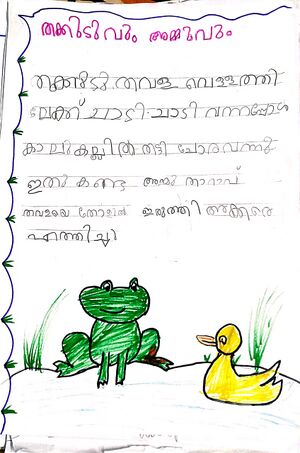 തക്കുടുവും അമ്മുവും
തക്കുടു തവള വെള്ളത്തി
ലേക്ക് ചാടി ചാടി വന്നപ്പോൾ
കാലുകല്ലിൽ തട്ടി ചോര വന്നു
ഇതു കണ്ട അമ്മു താറാവ്
തവളയെ തോളിൽ ഇരുത്തി അക്കരെ
എത്തിച്ചു